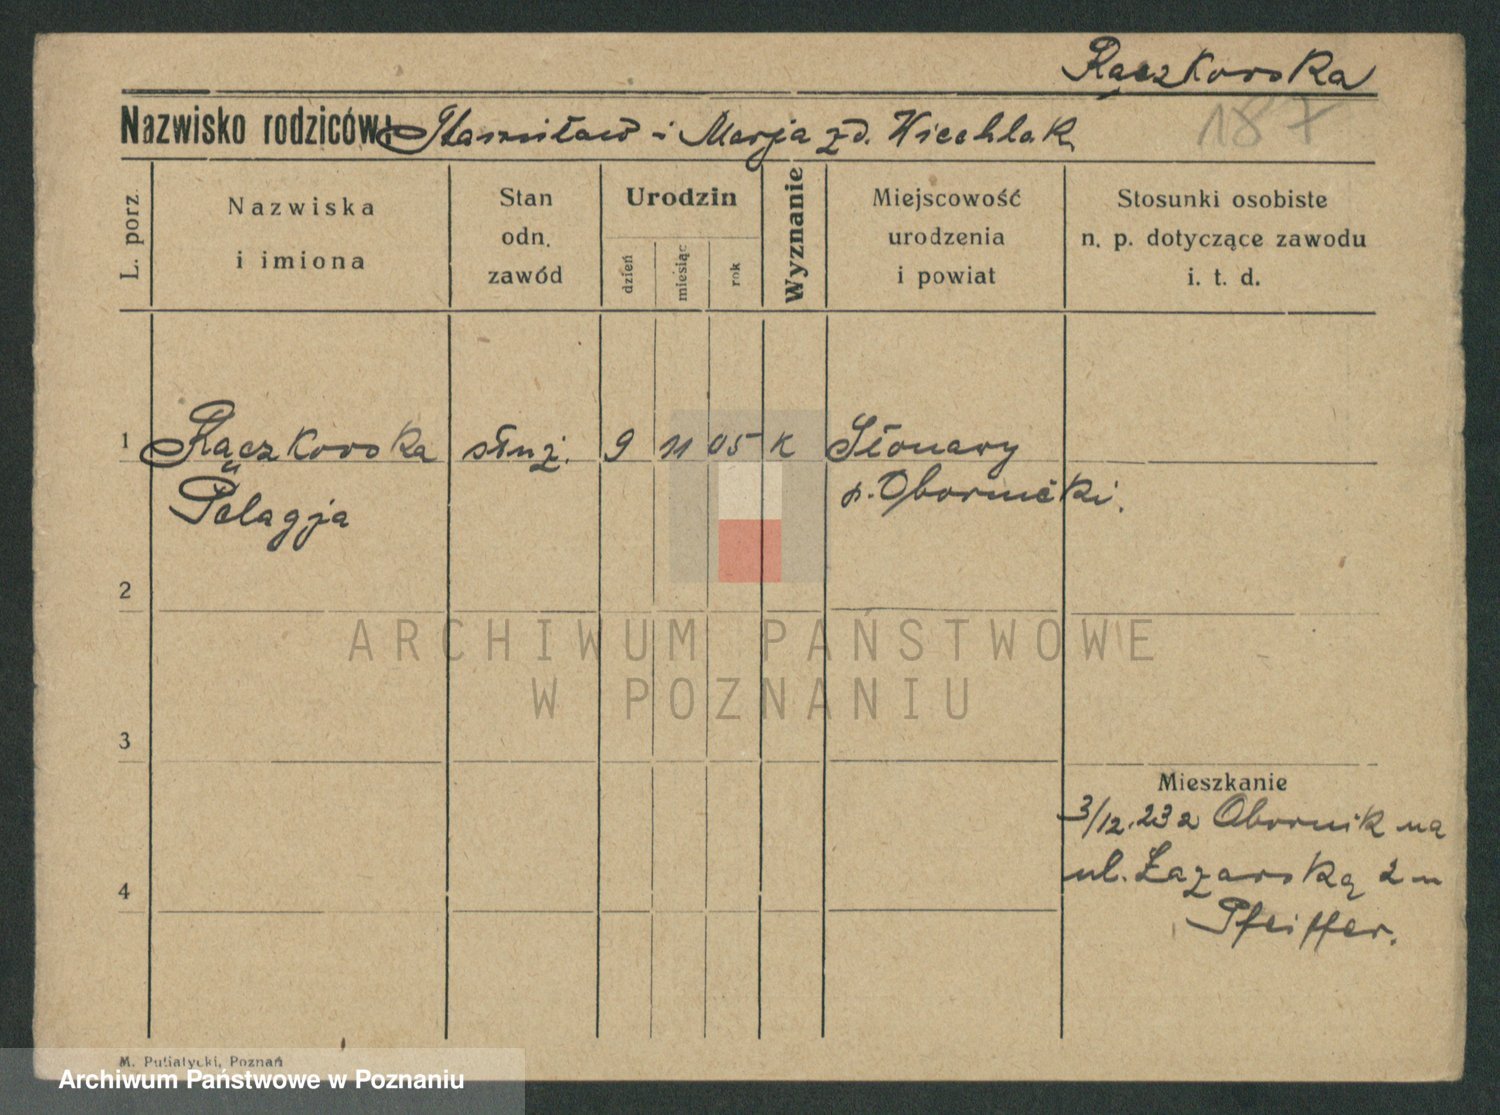 Rączkowska
187
Nazwisko rodziców: Stanisław i Marja zd. Wiechlak
L. porz.
Nazwiska
i imiona
Stan
odn.
zawód
Urodzin
dzień
miesiąc
rok
Wyznanie
Miejscowość
urodzenia
i powiat
Stosunki osobiste
n. p. dotyczące zawodu
i. t. d.
1 Rączkowska służ. 9 11 05 K Słonawy
Pelagja p. Obornicki.
2
ARCHIWUM PAŃSTWOWE
W POZNANIU
3
Mieszkanie
3/12.23 z Obornik na
ul. Łazarską 2 u
4
Pfeiffer.
M. Putiatycki, Poznań
Archiwum Państwowe w Poznaniu